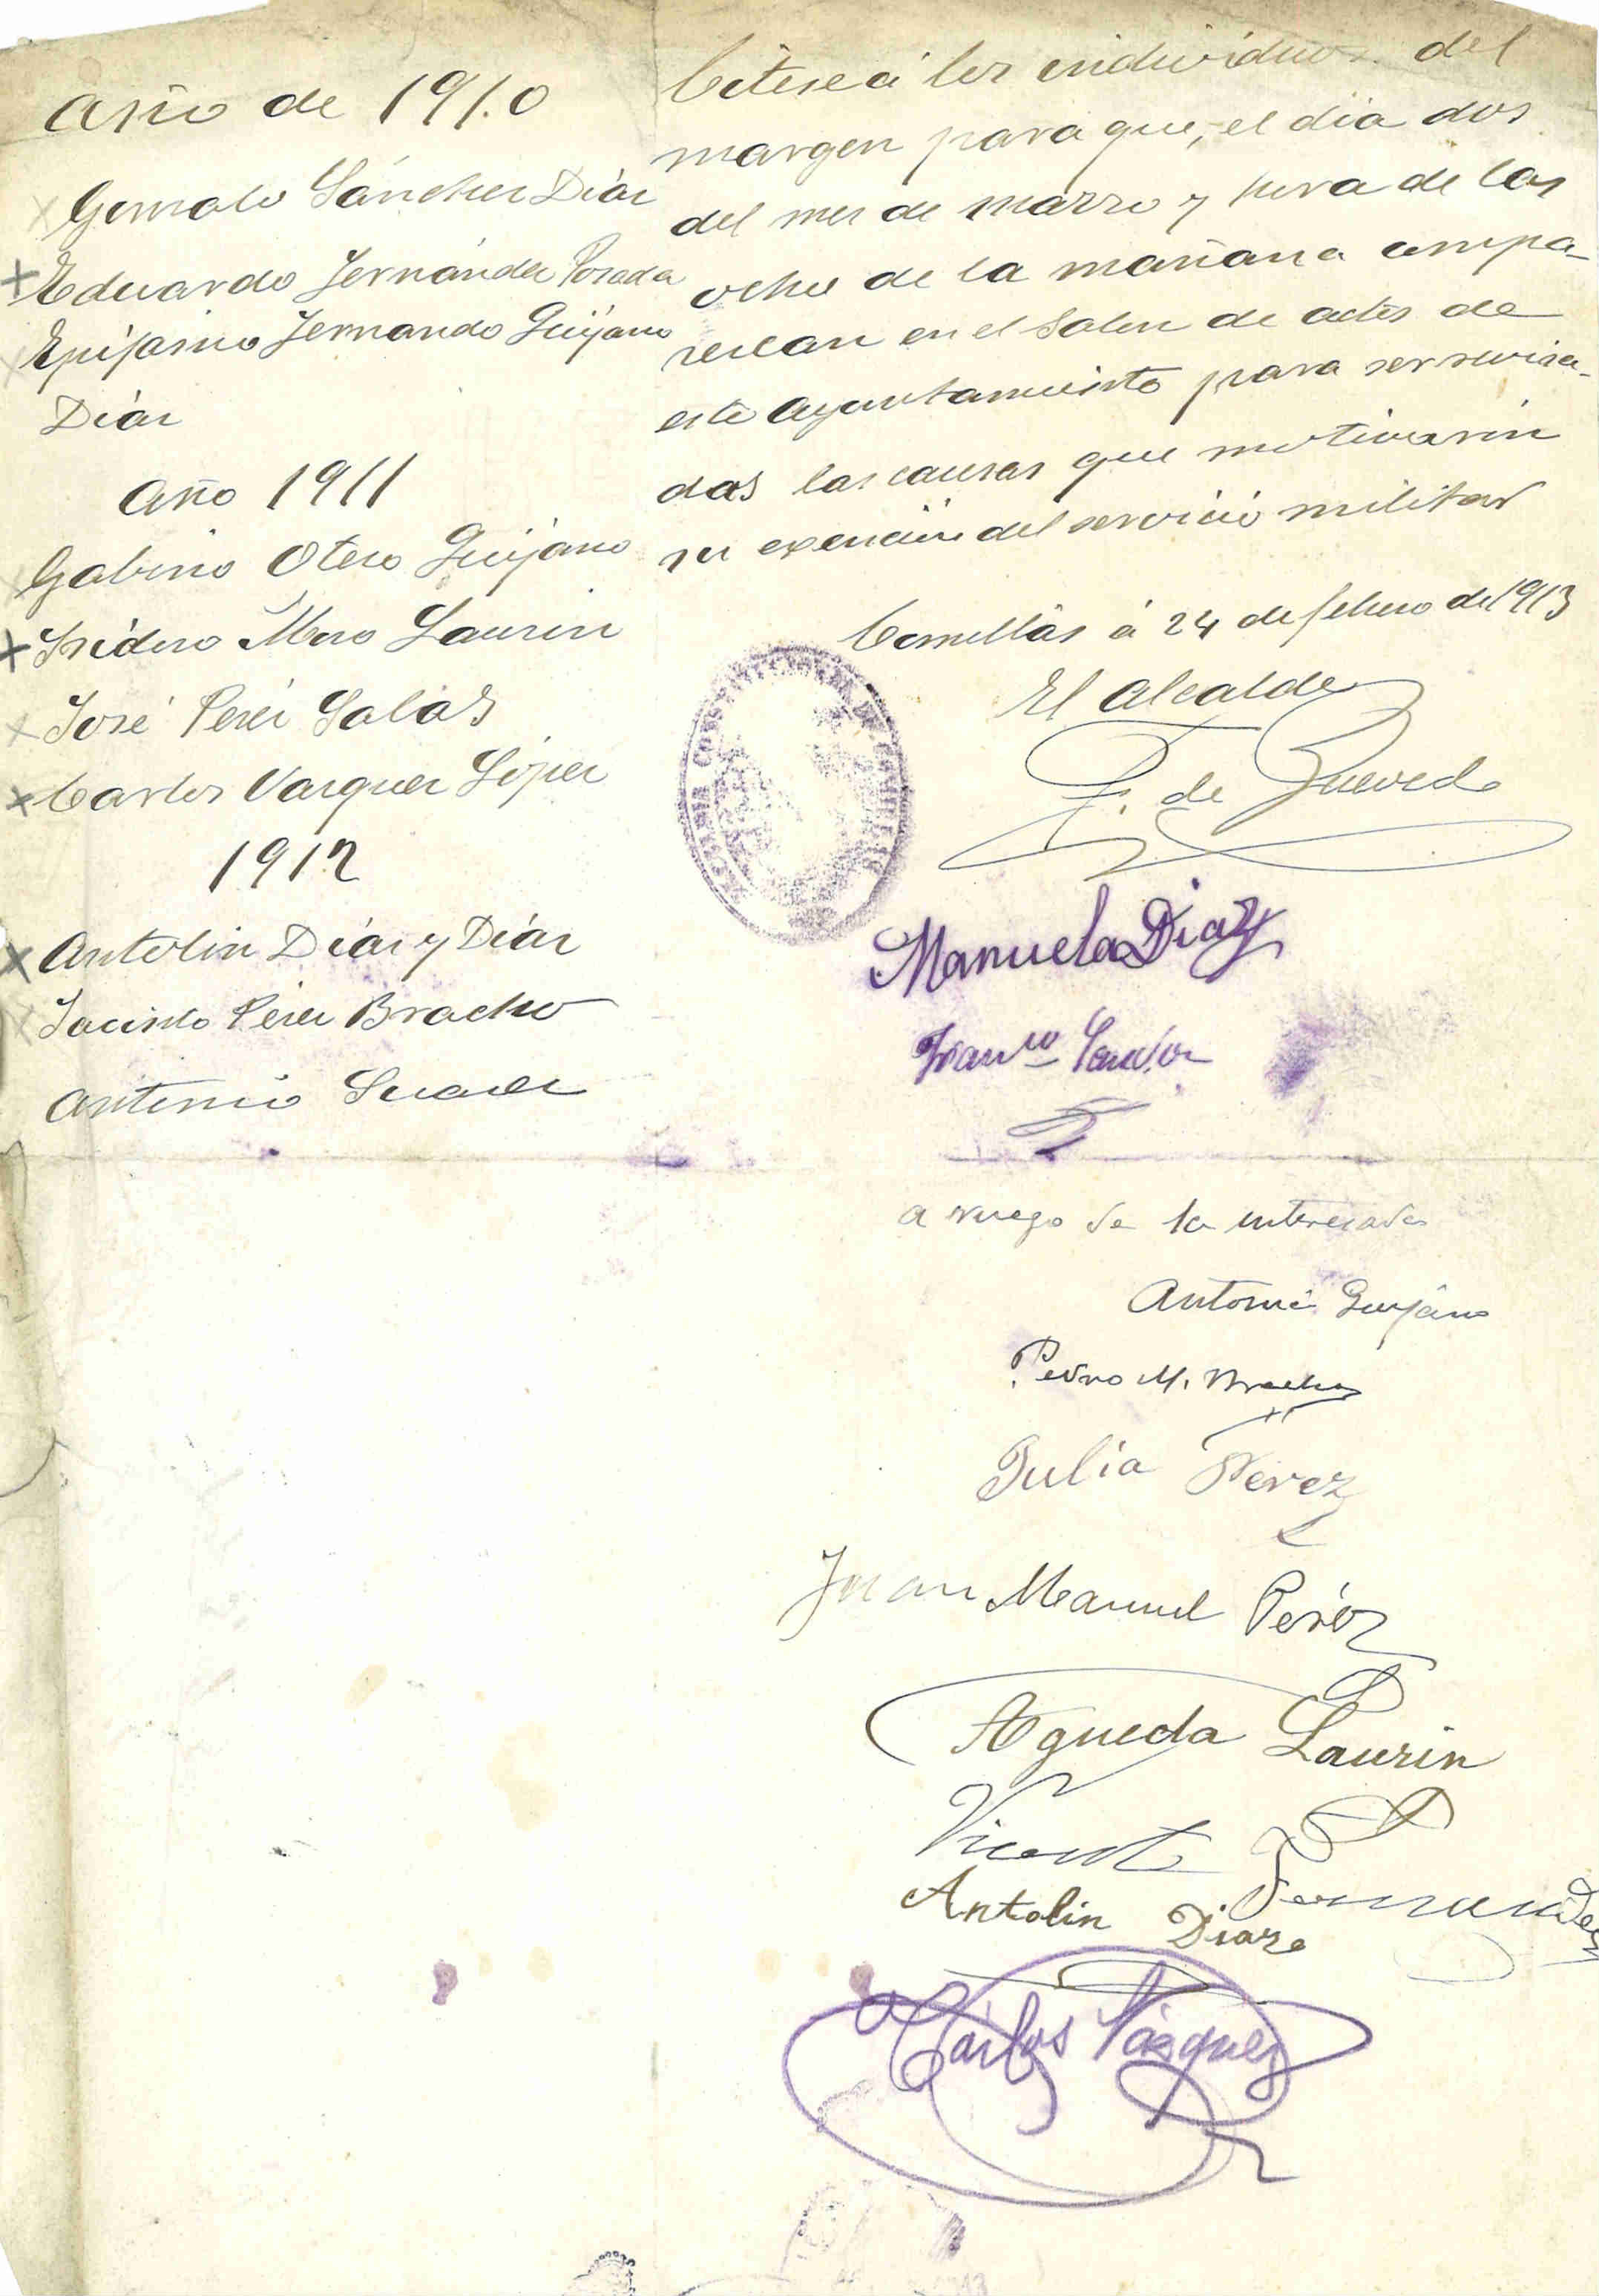 Año de 1910
Gonzalo Sánchez Díaz
Eduardo Fernández Posada
Epifanio Fernando Quijano
Díaz
Año 1911
Gabino Otero Quijano
Isidoro Moro Laurin
José Pérez Salas
Carlos Vazquez López
1912
Antolin Díaz y Díaz
Jacinto Pérez Bracho
Antonio Suarez
Citese á los individuos del
margen para que, el dia dos
del mes de marzo y hora de las
ocho de la mañana compa-
rezcan en el salon de actos de
este Ayuntamiento para ser revisa-
das las causas que motivaron
su exención del servicio militar
Comillas á 24 de febrero de 1913
El Alcalde
F. de Quevedo
ALCALDIA CONSTITUCIONAL DE
Manuela Diaz
Franco
a ruego de la interesada
Antonio Quijano
Pedro M. Bracho
Julia Perez
Juan Manuel Peréz
Agueda Laurin
Vicente Fernandez
Antolin Diaz
Cárlos Vázquez